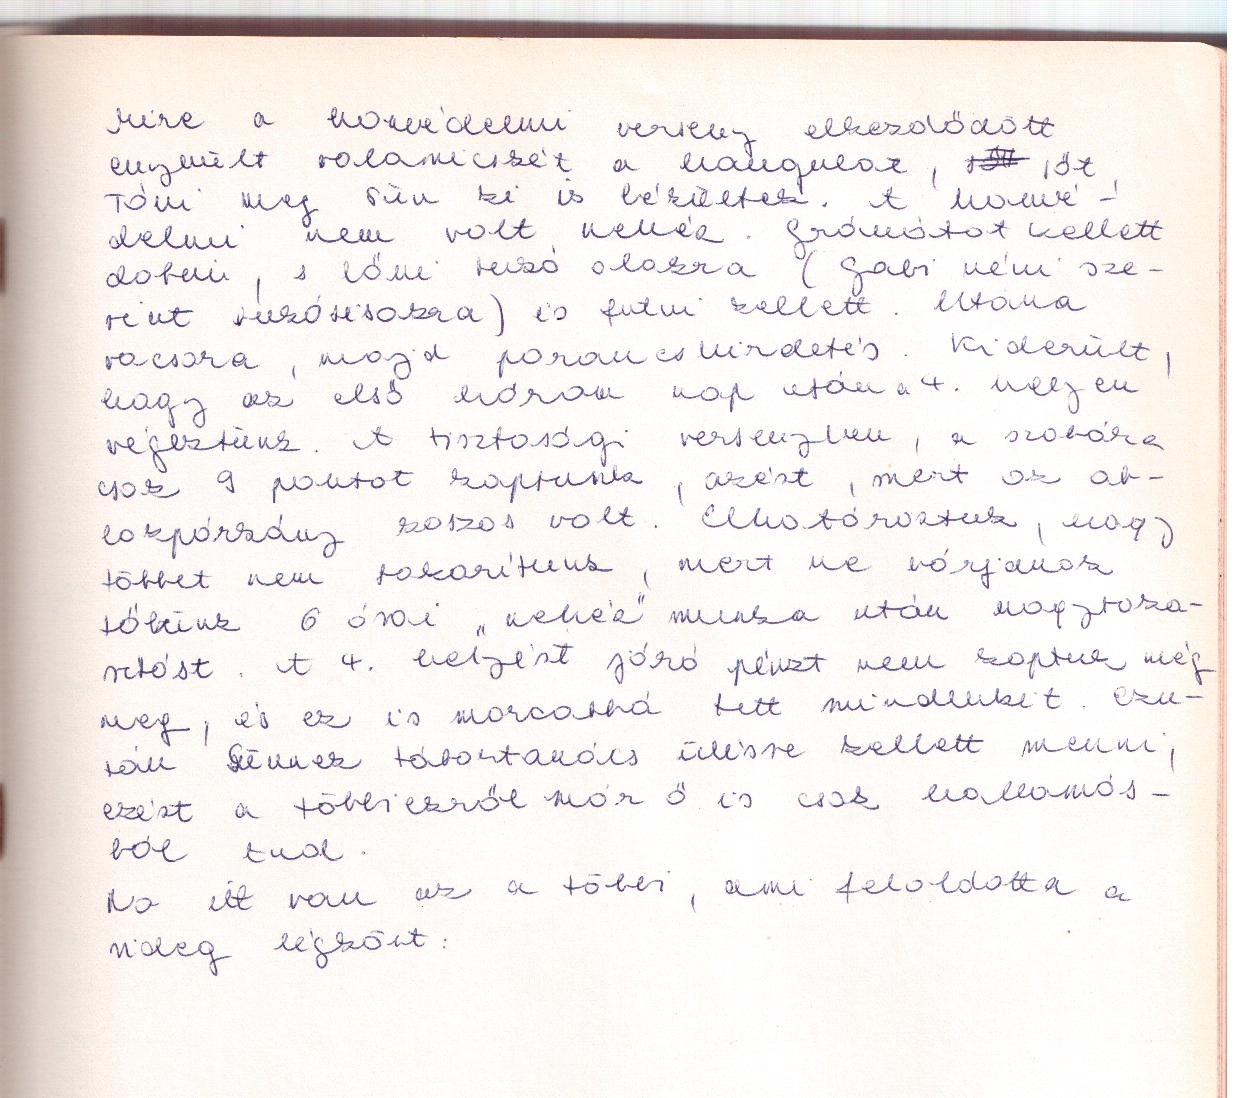 Mire a honvédelmi verseny elkezdődött
enyhült valamicskét a hangulat, sőt,
Tóni meg Sün ki is békültek. A honvé-
delmi nem volt nehéz. Gránátot kellett
dobni, s lőni ruzó alakra (Gabi néni sze-
rint is futni kellett. Utána
vacsora, majd parancshirdetés. Kiderült,
hogy az első három nap után a 4. helyen
végeztünk. A tisztasági versenyben, a szobára
csak 9 pontot kaptunk, azért, mert az ab-
lakpárkány koszos volt. Elhatároztuk, hogy
többet nem takarítunk, mert ne várjanak
tőlünk 6 órai „nehéz" munka után nagytaka-
rítást. A 4. helyért járó pénzt nem kaptuk még
meg, és ez is morcossá tett mindenkit. Ezu-
tán Sünnek tábortanács ülésre kellett menni,
ezért a többiekről már ő is csak hallomás-
ból tud.
Na itt van az a többi, ami feloldotta a
rideg légkört: